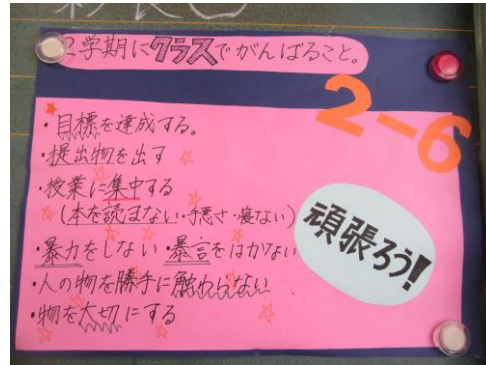 2学期にクラスでがんばること。
2-6
・目標を達成する。
・提出物を出す
・授業に集中する
(本を読まない・手悪さ・寝ない)
・暴力をしない・暴言をはかない
・人の物を勝手に触わらない
・物を大切にする
頑張ろう!